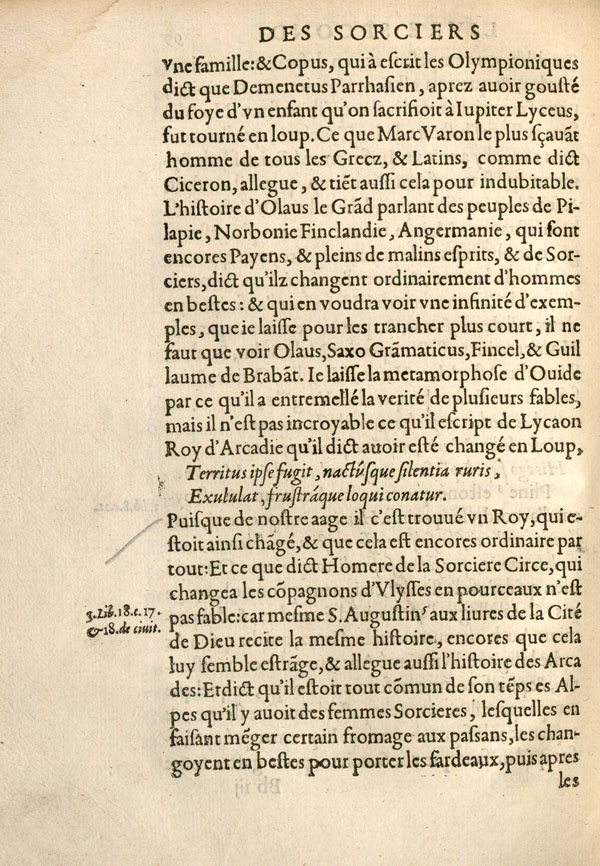 DES SORCIERS
vne famille: & Copus, qui à escrit les Olympioniques
dict que Demenetus Parrhasien, aprez auoir gousté
du foye d'vn enfant qu'on sacrifioit à Iupiter Lyceus,
fut tourné en loup. Ce que Marc Varon le plus sçauãt
homme de tous les Grecz, & Latins, comme dict
Ciceron, allegue, & tiẽt aussi cela pour indubitable.
L'histoire d'Olaus le Grãd parlant des peuples de Pi-
lapie, Norbonie Finclandie, Angermanie, qui sont
encores Payens, & pleins de malins esprits, & de Sor-
ciers, dict qu'ilz changent ordinairement d'hommes
en bestes: & qui en voudra voir vne infinité d'exem-
ples, que ie laisse pour les trancher plus court, il ne
faut que voir Olaus, Saxo Grãmaticus, Fincel, & Guil
laume de Brabãt. Ie laisse la metamorphose d'Ouide
par ce qu'il a entremellé la verité de plusieurs fables,
mais il n'est pas incroyable ce qu'il escript de Lycaon
Roy d'Arcadie qu'il dict auoir esté changé en Loup,
Territus ipse fugit, nactúsque silentia ruris,
Exululat, frustráque loqui conatur.
Puisque de nostre aage il c'est trouué vn Roy, qui e-
stoit ainsi chãgé, & que cela est encores ordinaire par
tout: Et ce que dict Homere de la Sorciere Circe, qui
changea les cõpagnons d'Vlysses en pourceaux n'est
3. Lib. 18. c. 17.
& 18. de ciuit.
pas fable: car mesme S. Augustin aux liures de la Cité
de Dieu recite la mesme histoire, encores que cela
luy semble estrãge, & allegue aussi l'histoire des Arca
des: Et dict qu'il estoit tout cõmun de son tẽps es Al-
pes qu'il y auoit des femmes Sorcieres, lesquelles en
faisant mẽger certain fromage aux passans, les chan-
goyent en bestes pour porter les fardeaux, puis apres
les